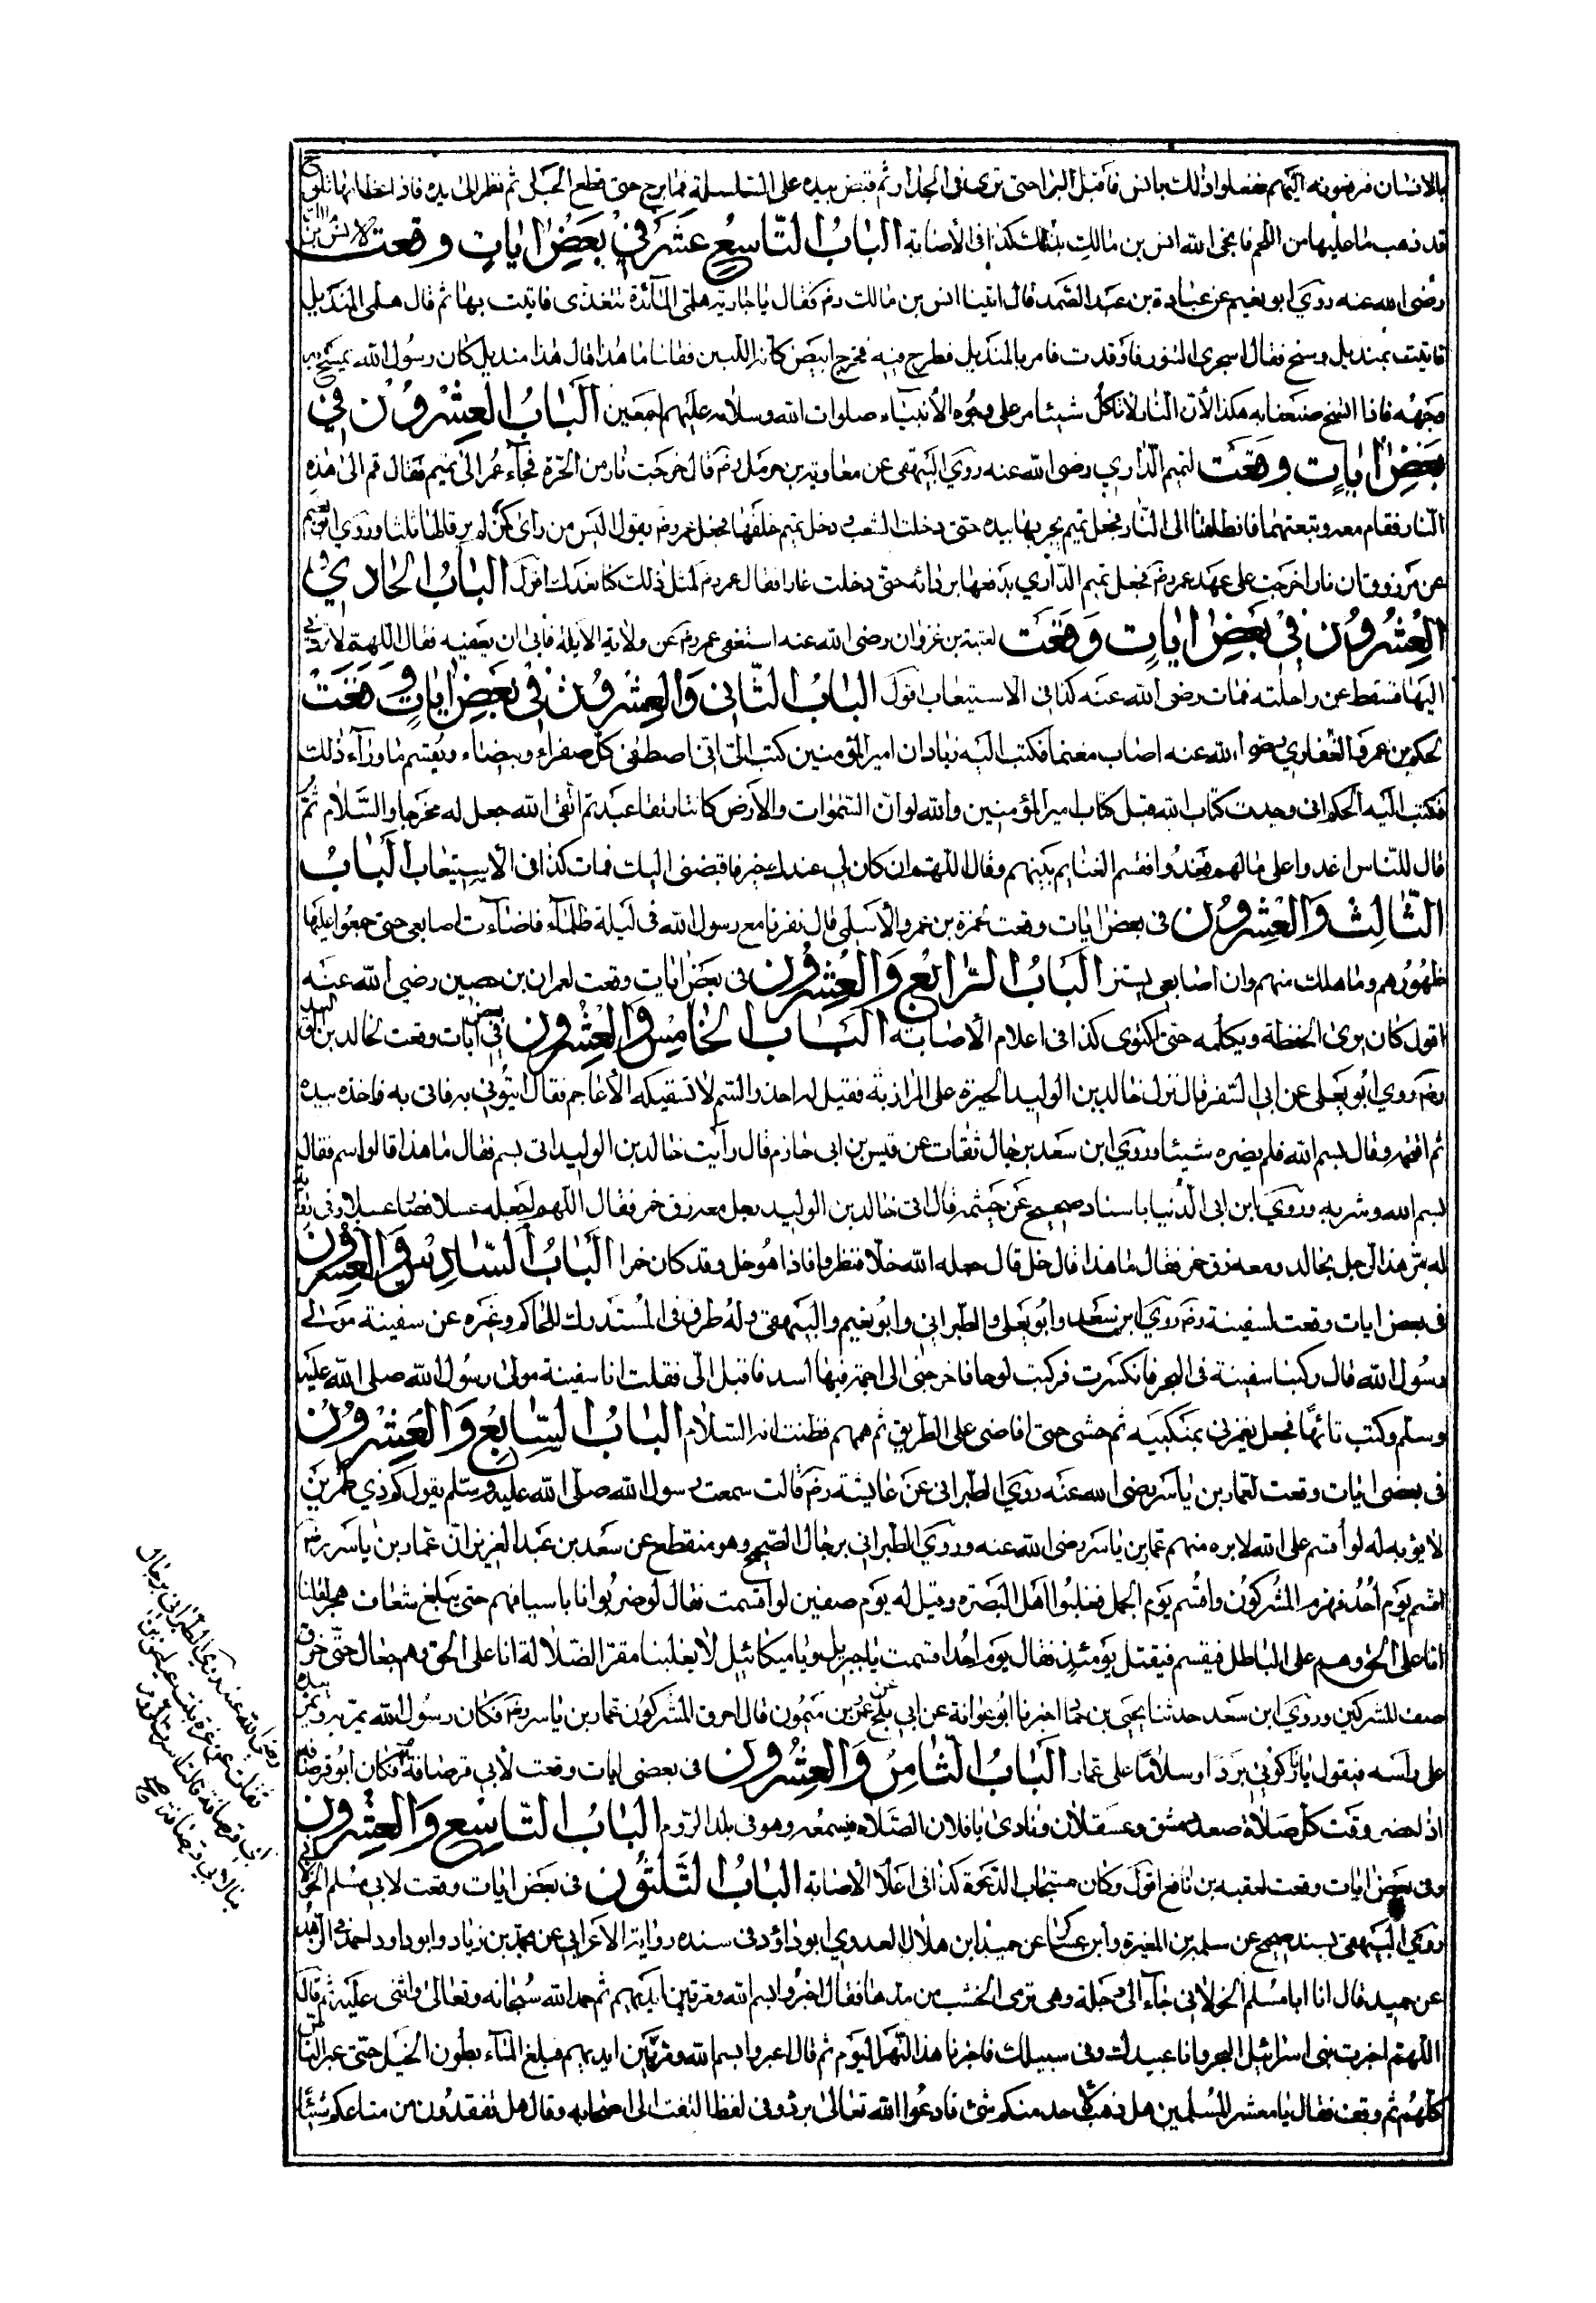 بالانسان فيرفعونه اليهم ففعلوا ذلك بانس فاقبل البراء حتى نزى فى الجدار ثم قبض بيده على السلسلة فما برح حتى قطع الحبل ثم نظر الى يده فاذا عظامها تلوح
قد ذهب ما عليها من اللحم فانجى الله انس بن مالك بذلك كذا فى الاصابة الباب التاسع عشر فى بعض ايات وقعت لانس بن مالك
رضى الله عنه روى ابو نعيم عن عباد بن عبد الصمد قال اتينا انس بن مالك رضه فقال يا جارية هلمى المائدة نتغذى فاتيت بها ثم قال هلمى المنديل
فاتيت بمنديل وسخ فقال اسجرى التنور فاوقدت فامر بالمنديل فطرح فيه فخرج ابيض كانه اللبن فقلنا ما هذا قال هذا منديل كان رسول الله يمسح به
وجهه فاذا اتسخ صنعنا به هكذا لأن النار لا تاكل شيئا مر على وجوه الأنبياء صلوات الله وسلامه عليهم اجمعين الباب العشرون فى
بعض ايات وقعت لتميم الدارى رضى الله عنه روى البيهقى عن معاوية بن حرمل رضه قال خرجت نار من الحرة فجاء عمر الى تميم فقال قم الى هذه
النار فقام معه وتبعتهما فانطلقنا الى النار فجعل تميم يحوشها بيده حتى دخلت الشعب ودخل تميم خلفها فجعل عمر رضه يقول ليس من راى كمن لم ير قالها ثلثا وروى ابو نعيم
عن مرزوق ان نارا خرجت على عهد عمر رضه فجعل تميم الدارى يدفعها بردائه حتى دخلت غارا فقال عمر رضه لمثل ذلك كنا نعدك اقول الباب الحادى
العشرون فى بعض ايات وقعت لعتبة بن غزوان رضى الله عنه استعفى عمر رضه عن ولاية الابلة فابى ان يعفيه فقال اللهم لا تردنى
اليها فسقط عن راحلته فمات رضى الله عنه كذا فى الاستيعاب اقول الباب الثانى والعشرون فى بعض ايات وقعت
لحكم بن عمرو الغفارى رضى الله عنه اصاب مغنما فكتب اليه زياد ان امير المؤمنين كتب الى انى اصطفى كل صفراء وبيضاء ويقسم ما وراء ذلك
فكتب اليه الحكم انى وجدت كتاب الله قبل كتاب امير المؤمنين والله لو ان السموات والارض كانتا رتقا على عبد ثم اتقى الله جعل له مخرجا والسلام ثم
قال للناس اغدوا على مالهم فغدوا فقسم الغنايم بينهم وقال اللهم ان كان لى عندك خير فاقبضنى اليك فمات كذا فى الاستيعاب الباب
الثالث والعشرون فى بعض ايات وقعت لحمزة بن عمرو الاسلمى قال نفرنا مع رسول الله فى ليلة ظلماء فاضاءت اصابعى حتى جمعوا عليها
ظهورهم وما هلك منهم وان اصابعى لتنير الباب الرابع والعشرون فى بعض ايات وقعت لعمران بن حصين رضى الله عنه
اقول كان يرى الحفظة ويكلمه حتى اكتوى كذا فى اعلام الاصابة الباب الخامس والعشرون فى بعض ايات وقعت لخالد بن الوليد
رضه روى ابو يعلى عن ابى السفر قال نزل خالد بن الوليد الحيرة على المرازبة فقيل له احذر السم لا تسقيكه الأعاجم فقال ايتونى به فاتى به فاخذه بيده
ثم اقتحمه وقال بسم الله فلم يضره شيئا وروى ابن سعد برجال ثقات عن قيس بن ابى حازم قال رأيت خالد بن الوليد اتى بسم فقال ما هذا قالوا سم فقال
بسم الله وشربه وروى ابن ابى الدنيا باسناد صحيح عن خيثمة قال اتى خالد بن الوليد رجل معه زق خمر فقال اللهم اجعله عسلا فصار عسلا وفى رواية
له مر هذا الرجل بخالد ومعه زق خمر فقال ما هذا قال خل قال جعله الله خلا فنظروا فاذا هو خل وقد كان خمرا الباب السادس والعشرون
فى بعض ايات وقعت لسفينة رضه روى ابن سعد وابو يعلى والطبرانى وابو نعيم والبيهقى وله طرق فى المستدرك للحاكم وغيره عن سفينة مولى
رسول الله قال ركبنا سفينة فى البحر فانكسرت فركبت لوحا فاخرجنى الى اجمة فيها اسد فاقبل الى فقلت انا سفينة مولى رسول الله صلى الله عليه
وسلم وكنت تائها فجعل يغمزنى بمنكبيه ثم مشى حتى اقامنى على الطريق ثم همهم فظننت انه السلام الباب السابع والعشرون
فى بعض ايات وقعت لعمار بن ياسر رضى الله عنه روى الطبرانى عن عايشة رضه قالت سمعت رسول الله صلى الله عليه وسلم يقول كم ذى طمرين
لا يؤبه له لو أقسم على الله لابره منهم عمار بن ياسر رضى الله عنه وروى الطبرانى برجال الصحيح وهو منقطع عن سعد بن عبد العزيز ان عمار بن ياسر رضه
اقسم يوم احد فهزم المشركون واقسم يوم الجمل فغلبوا اهل البصرة وقيل له يوم صفين لو اقسمت فقال لو ضربونا باسيافهم حتى نبلغ شعاف هجر لقلنا
انا على الحق وهم على الباطل فيقسم فيقتل يومئذ فقال يوم احد اقسمت يا جبريل ويا ميكائيل لا يغلبنا مقر الضلالة انا على الحق وهم جهال حتى خرق
صف المشركين وروى ابن سعد حدثنا يحيى بن حماد اخبرنا ابو عوانة عن ابى بلج عن عمرو بن ميمون قال احرق المشركون عمار بن ياسر رضه فكان رسول الله يمر به ويمر بيده
على راسه فيقول يا نار كونى بردا وسلاما على عمار الباب الثامن والعشرون فى بعض ايات وقعت لأبى قرصافة فكان ابو قرصافة
اذا حضر وقت كل صلاة صعد دمشق وعسقلان ونادى يا فلان الصلاة فيسمعه وهو فى بلد الروم الباب التاسع والعشرون
وفى بعض ايات وقعت لعقبة بن نافع اقول وكان مستجاب الدعوة كذا فى اعلام الاصابة الباب الثلثون فى بعض ايات وقعت لابى مسلم الخولانى
روى البيهقى بسند صحيح عن سليمن بن المغيرة وابن عساكر عن حميد ابن هلال العدوى ابو داؤد فى سننه رواية الاعرابى عن محمد بن زياد وابو داود احمد فى الزهد
عن حميد قال انا ابا مسلم الخولانى جاء الى دجلة وهى ترمى الخشب من مدها فقال اجيزوا بسم الله ومر بين ايديهم ثم حمد الله سبحانه وتعالى واثنى عليه ثم قال
اللهم اجزت بنى اسرائيل البحر وانا عبيدك وفى سبيلك فاجزنا هذا النهر اليوم ثم قال اعبروا بسم الله ومر بين ايديهم فبلغ الماء بطون الخيل حتى عبر الناس
كلهم ثم وقف فقال يا معشر المسلمين هل ذهب لأحد منكم شئ فادعوا الله تعالى برده وفى لفظ التفت الى اصحابه وقال هل تفقدون من متاعكم شيئا
رضى الله عنه روى الطبرانى برجال
ثقات عن عزة بنت عياض بن
ابى قرصافة قالت اسر الروم